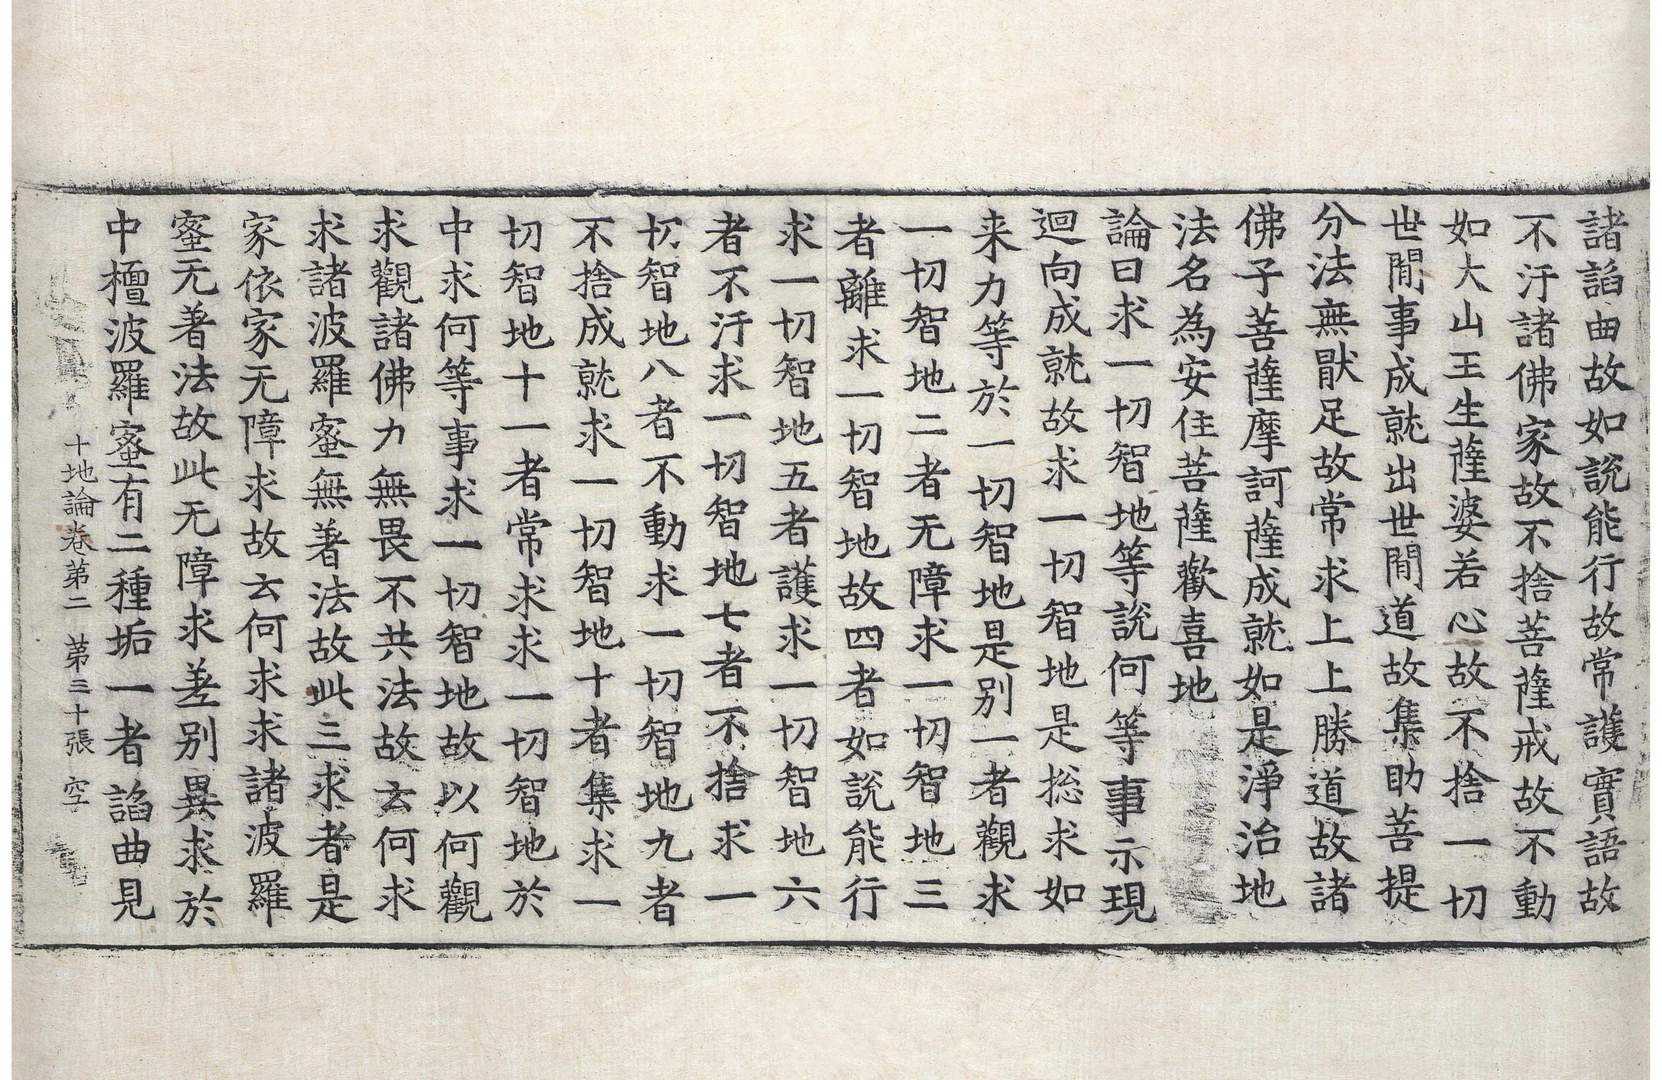 諸諂曲故如說能行故常護實語故
不汙諸佛家故不捨菩薩戒故不動
如大山王生薩婆若心故不捨一切
世閒事成就出世閒道故集助菩提
分法無猒足故常求上上勝道故諸
佛子菩薩摩訶薩成就如是淨治地
法名為安住菩薩歡喜地
論曰求一切智地等說何等事示現
迴向成就故求一切智地是捴求如
来力等於一切智地是別一者觀求
一切智地二者无障求一切智地三
者離求一切智地故四者如說能行
求一切智地五者護求一切智地六
者不汙求一切智地七者不捨求一
切智地八者不動求一切智地九者
不捨成就求一切智地十者集求一
切智地十一者常求求一切智地於
中求何等事求一切智地故以何觀
求觀諸佛力無畏不共法故云何求
求諸波羅蜜無著法故此三求者是
家依家无障求故云何求求諸波羅
蜜无著法故此无障求差別異求於
中檀波羅蜜有二種垢一者諂曲見
十地論卷第二　第三十張　空